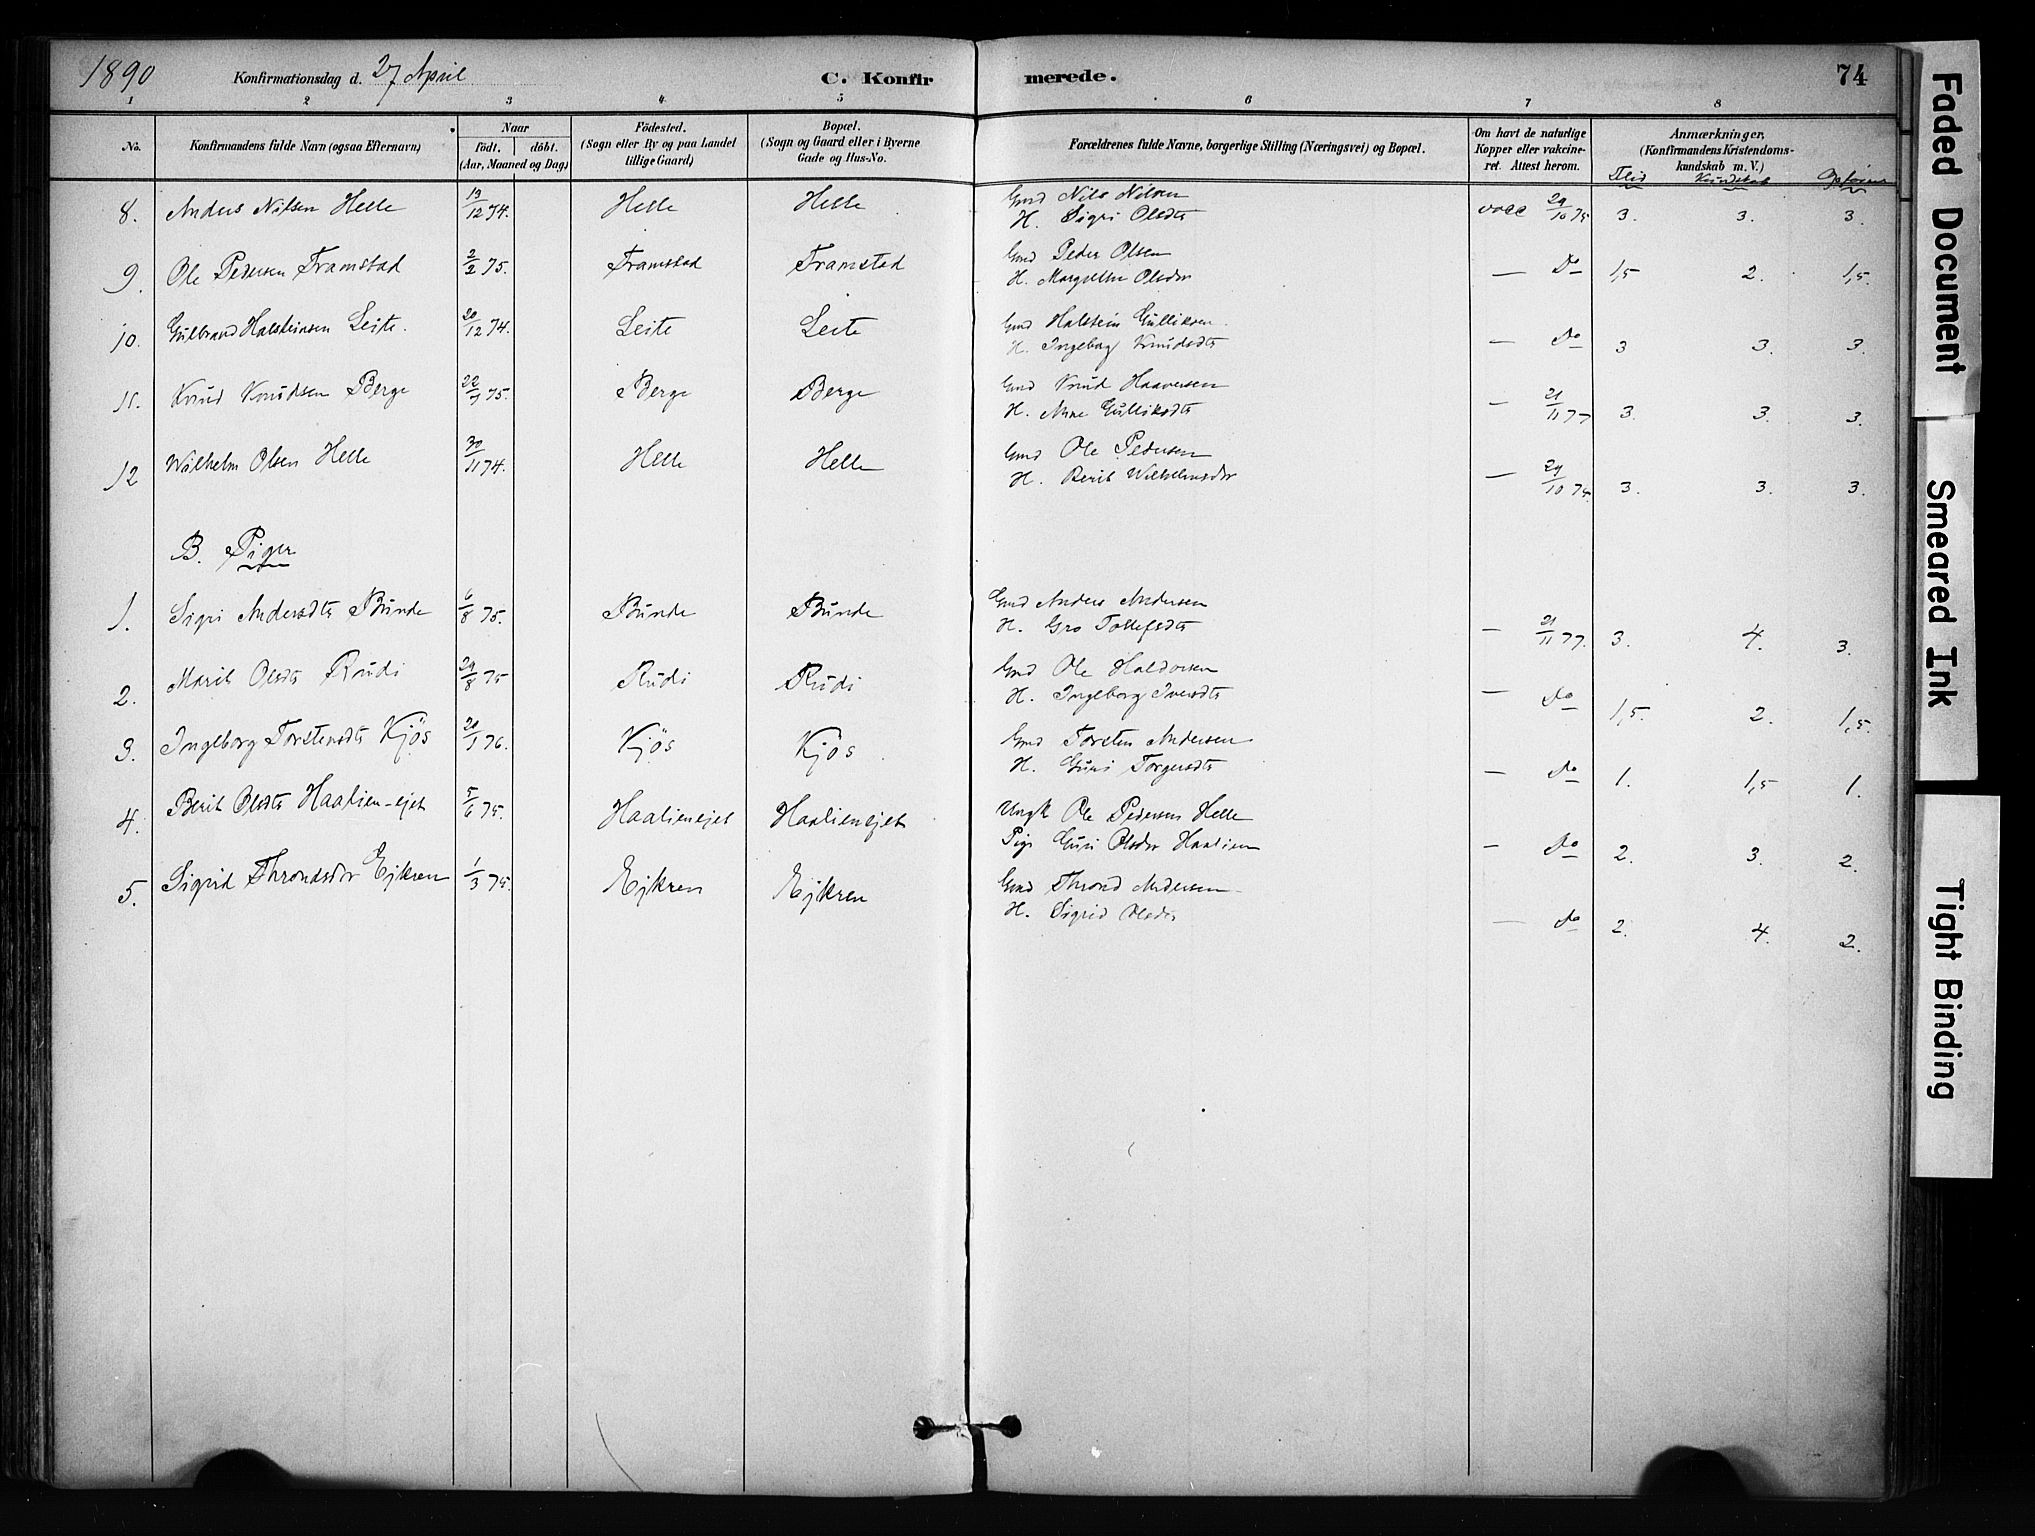 1890 Konfirmationsdag d. 27 April C. Konfir merede. 74
1 2 3 4 5 6 7 8
No. Konfirmandens fulde Navn (ogsaa Efternavn) Naar födt. döbt. (Aar, Maaned og Dag) Födested. (Sogn eller By og paa Landet tillige Gaard) Bopæl. (Sogn og Gaard eller i Byerne Gade og Hus-No. Forældrenes fulde Navne, borgerlige Stilling (Næringsvei) og Bopæl. Om havt de naturlige Kopper eller vakcineret. Attest herom. Anmærkninger, (Konfirmandens Kristendomskundskab m. V.)
Flid Kundskab
8. Anders Nilsen Helle 13/12 74. Helle Helle Gmd Nils Nilsen vacc 29/10 75 3. 3. 3.
H. Sigri Olsdtr
9. Ole Pedersen Framstad 2/2 75. Framstad Framstad Gmd Peder Olsen — Do 1,5 2. 1,5.
H. Margrethe Olsdtr
10. Gulbrand Halsteinsen Leite. 20/12 74. Leite Leite Gmd Halstein Gulliksen — Do 3 3. 3.
H. Ingebog Knudsdtr
11. Knud Knudsen Berge 22/1 75. Berge Berge Gmd Knud Haaversen — 21/11 77 3. 3. 3.
H. Anne Gulliksdtr
12 Wilhelm Olsen Helle 30/11 74. Helle Helle Gmd Ole Pedersen — 29/10 74. 3. 3. 3.
H. Berit Wilhelmsdtr
B. Piger
1. Sigri Andersdtr Bunde 6/8 75. Bunde Bunde Gmd Anders Andersen — 21/11 77. 3. 4. 3.
H. Gro Tollefsdtr
2. Marit Olsdtr Rudi 29/8 75 Rudi Rudi Gmd Ole Haldorsen — Do 1,5. 2. 1,5.
H. Ingeborg Iversdtr
3. Ingeborg Torstensdtr Kjös 20/1 76. Kjös Kjös Gmd Torsten Andersen — Do 1. 1,5 1.
H. Guri Torgersdtr
4. Berit Olsdtr Haalien-ejet 5/6 75. Haalienejet Haalienejet Ungk Ole Pedersen Helle — Do 2. 3. 2.
Pige Guri Olsdtr Haalien
5. Sigrid Throndsdtr Ejkren 1/3 75. Ejkren Ejkren Gmd Thrond Andersen — Do 2. 4. 2.
H. Sigrid Olsdtr
Faded Document
Smeared Ink
Tight Binding